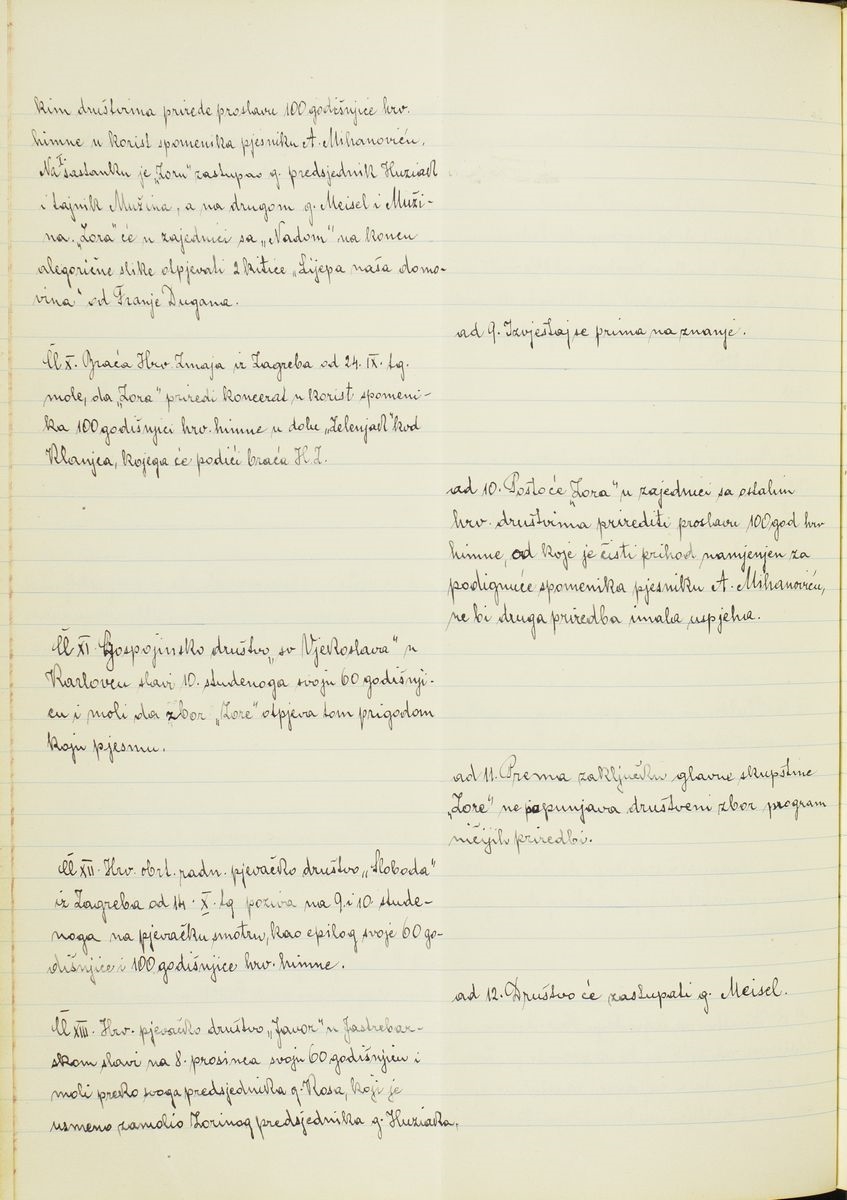 kim društvima prirede proslavu 100 godišnjice hrv.
himne u korist spomenika pjesniku A. Mihanoviću.
Na I. sastanku je „Zoru" zastupao g. predsjednik Huziak
i tajnik Mužina, a na drugom g. Meisel i Muži-
na. „Zora" će u zajednici sa „Nadom" na koncu
alegorične slike otpjevati 2 kitice „Lijepa naša domo-
vina" od Franje Dugana.
ad 9. Izvještaj se prima na znanje.
Čl X. Braća Hrv. Zmaja iz Zagreba od 24. IX. tg.
mole, da „Zora" priredi koncerat u korist spomeni-
ka 100 godišnjici hrv. himne u dolu „Zelenjak" kod
Klanjca, kojega će podići braća H.Z.
ad 10. Pošto će „Zora" u zajednici sa ostalim
hrv. društvima prirediti proslavu 100 god hrv
himne, od koje je čisti prihod namjenjen za
podignuće spomenika pjesniku A. Mihanoviću,
ne bi druga priredba imala uspjeha.
Čl XI. Gospojinsko društvo „sv Vjekoslava" u
Karlovcu slavi 10. studenoga svoju 60 godišnji-
cu i moli da zbor „Zore" otpjeva tom prigodom
koju pjesmu.
ad 11. Prema zaključku glavne skupštine
„Zore" ne popunjava društveni zbor program
ničijih priredbi.
Čl XII. Hrv. obrt. radn. pjevačko društvo „Sloboda"
iz Zagreba od 14. X. tg poziva na 9. i 10. stude-
noga na pjevačku smotru, kao epilog svoje 60 go-
dišnjice i 100 godišnjice hrv. himne.
ad 12. Društvo će zastupati g. Meisel.
Čl XIII. Hrv. pjevačko društvo „Javor" u Jastrebar-
skom slavi na 8. prosinca svoju 60 godišnjicu i
moli preko svoga predsjednika g. Rosa, koji je
usmeno zamolio Zorinog predsjednika g. Huziaka,